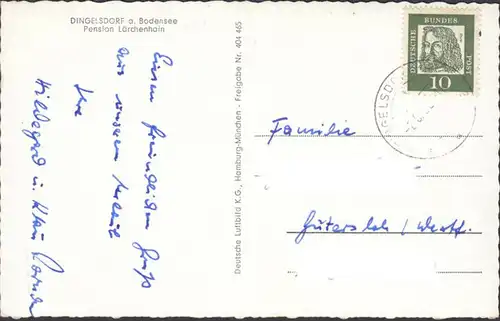 DINGELSDORF a. Bodensee
Pension Lärchenhain
Einen freundlichen Gruß
aus unserem Urlaub
Ihre
Hildegard u. Klaus
Deutsche Luftbild K.G., Hamburg-München - Freigabe Nr. 404 465
DEUTSCHE
BUNDES
POST
10
Familie
Gütersloh / Westf.